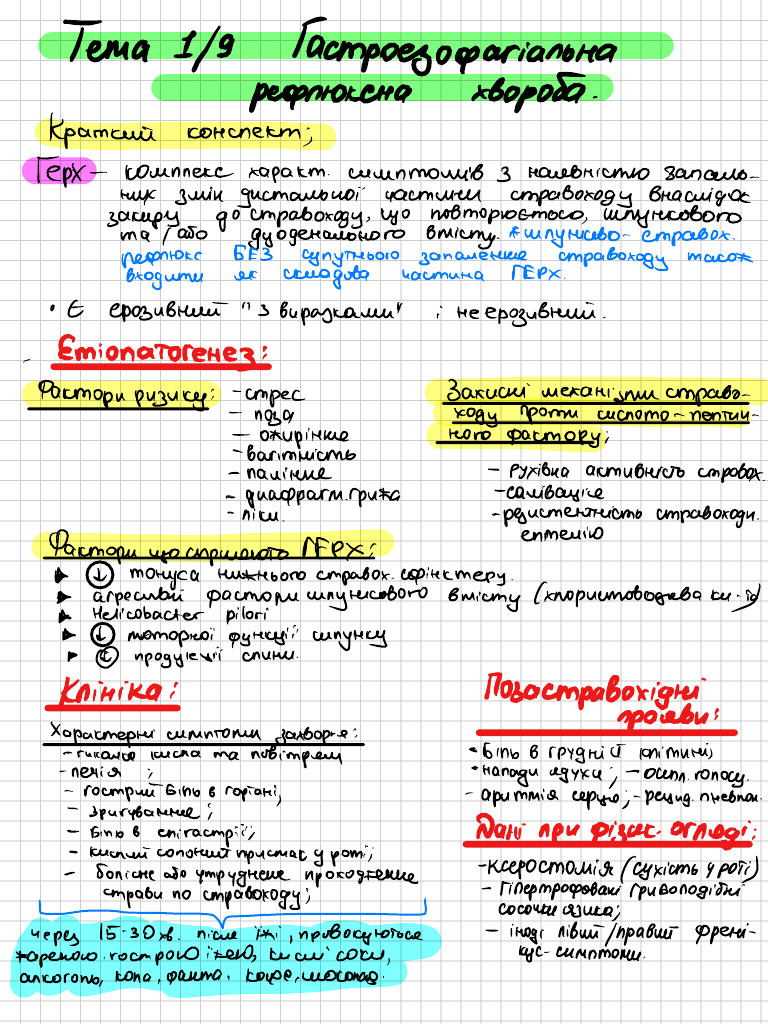 Тема 1/9 Гастроезофагіальна
рефлюксна хвороба.
Краткий конспект;
Герх – комплекс характ. симптомів з наявністю запаль-
них змін дистальної частини стравоходу внаслідок
закиду до стравоходу, що повторюється, шлункового
та/або дуоденального вмісту. *шлунково-стравох.
рефлюкс БЕЗ супутнього запалення стравоходу також
входити як складова частина ГЕРХ.
• Є ерозивний "з виразками" і неерозивний.
Етіопатогенез:
Фактори ризику:
– стрес
– поза
– ожиріння
– вагітність
– паління
– диафрагм. грижа
– ліки.
Захисні механізми страво-
ходу проти кислото-пептич-
ного фактору;
– рухівна активність стравох.
– салівація
– резистентність стравоходн.
епітелію
Фактори що сприяють ГЕРХ:
↓ тонуса нижнього стравох. сфінктеру.
агресивні фактори шлункового вмісту (хлористоводнева ки-та)
Helicobacter pilori
↓ моторної функції шлунку
↓ продукції слини.
Клініка:
Характерні симптоми захвор-я:
– гикавка кисла та повітрям
– печія ;
– гострий біль в гортані;
– зригування;
– біль в епігастрії;
– кислий солоний присмак у роті;
– болісне або утруднене проходження
страви по стравоходу;
через 15-30 хв. після їжі, провокується
жареною. гострою їжею, кислі соки,
алкоголь, кола, фанта. кофе, шоколад.
Позастравохідні
прояви:
• Біль в грудній клітині;
• напади ядухи; – осипл. голосу.
– аритмія серцю; – рецид. пневмон.
Дані при фізик. огляді:
– ксеростомія (сухість у роті)
– гіпертрофовані грибоподібні
сосочки язика;
– іноді лівий/правий френі-
кус-симптоми.